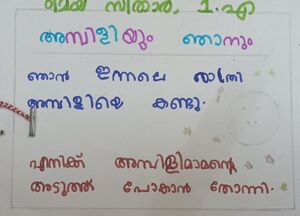 റമെയ സിതാര, 1.എ
അമ്പിളിയും ഞാനും
ഞാൻ ഇന്നലെ രാത്രി
അമ്പിളിയെ കണ്ടു.
എനിക്ക് അമ്പിളിമാമൻ്റെ
അടുത്ത് പോകാൻ തോന്നി.